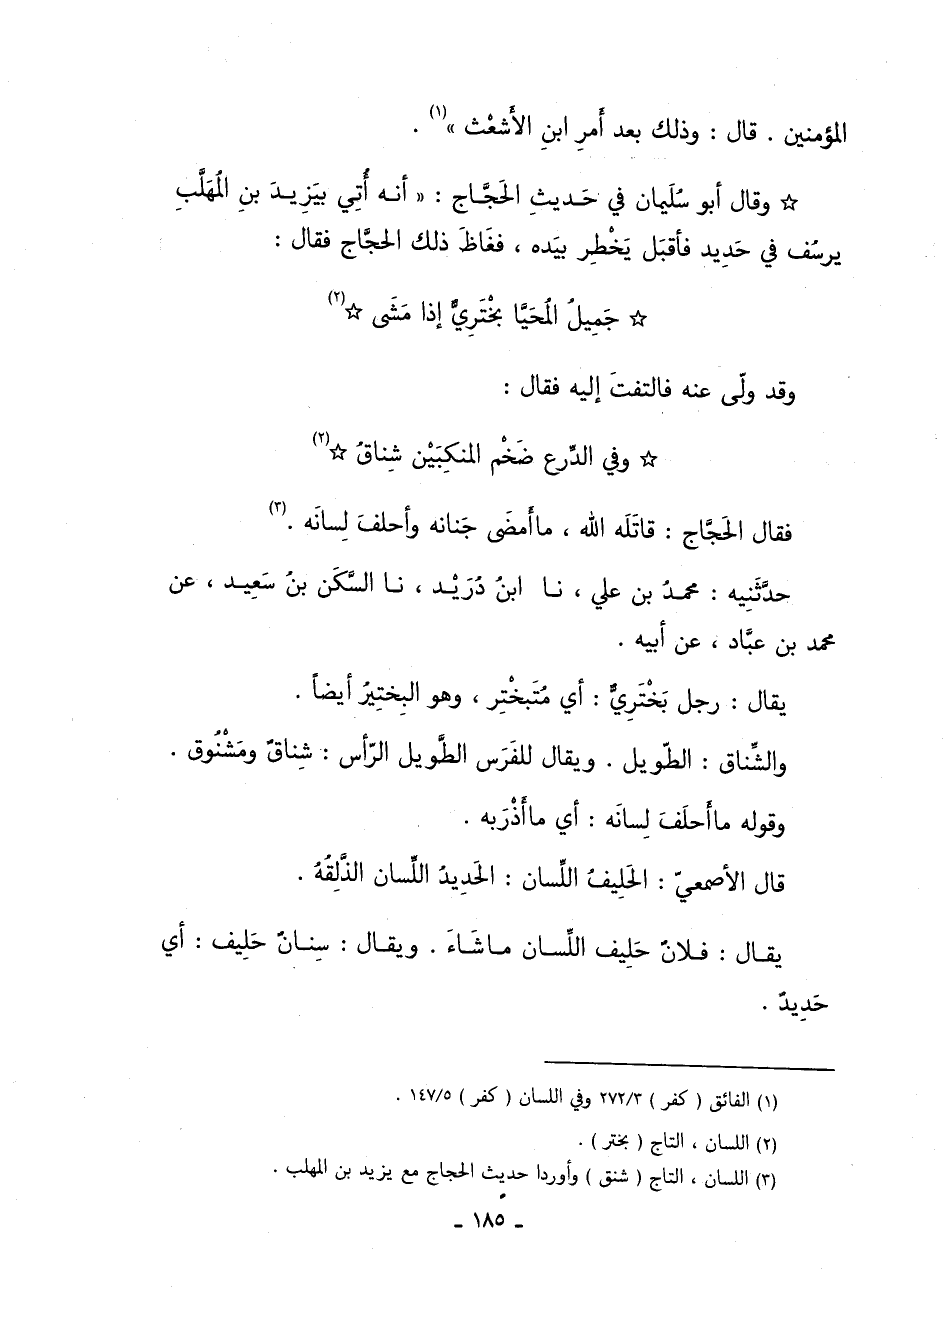 المؤمنين . قال : وذلك بعد أَمرِ ابنِ الأَشعْث »(١) .
☆ وقال أبو سُلَيمان في حَديثِ الحَجَّاج : « أنه أُتِي بيَزِيدَ بن المُهَلَّبِ
يرسُف في حَدِيد فأقبَل يَخْطِر بيَده ، فغَاظَ ذلك الحجَّاج فقال :
☆ جَمِيلُ المُحَيَّا بخْتَرِيٌّ إذا مَشَى ☆(٢)
وقد ولّى عنه فالتفتَ إليه فقال :
☆ وفي الدِّرع ضَخْم المنكِبَيْن شِناقُ ☆(٢)
فقال الحَجَّاج : قاتَلَه الله ، ماأَمضَى جَنانه وأحلفَ لِسانَه .(٣)
حدَّثَنِيه : محمدُ بن علي ، نا ابنُ دُرَيْد ، نا السَّكَن بنُ سَعِيد ، عن
محمد بن عبَّاد ، عن أبيه .
يقال : رجل بَخْتَرِيٌّ : أي مُتَبخْتِر ، وهو البِختِيرُ أيضاً .
والشِّناق : الطّويل . ويقال للفَرَس الطَّويل الرّأس : شِناقٌ ومَشْنُوق .
وقوله ماأَحلَفَ لِسانَه : أي ماأَذْرَبه .
قال الأصمعيّ : الحَلِيفُ اللِّسان : الحَدِيدُ اللِّسان الذَّلِقُهُ .
يقال : فلانٌ حَلِيف اللِّسان ماشَاءَ . ويقال : سِنانٌ حَلِيف : أي
حَدِيدٌ .
(١) الفائق ( كفر ) ٢٧٢/٣ وفي اللسان ( كفر ) ١٤٧/٥ .
(٢) اللسان ، التاج ( بختر ) .
(٣) اللسان ، التاج ( شنق ) وأوردا حديث الحجاج مع يزيد بن المهلب .
- ١٨٥ -